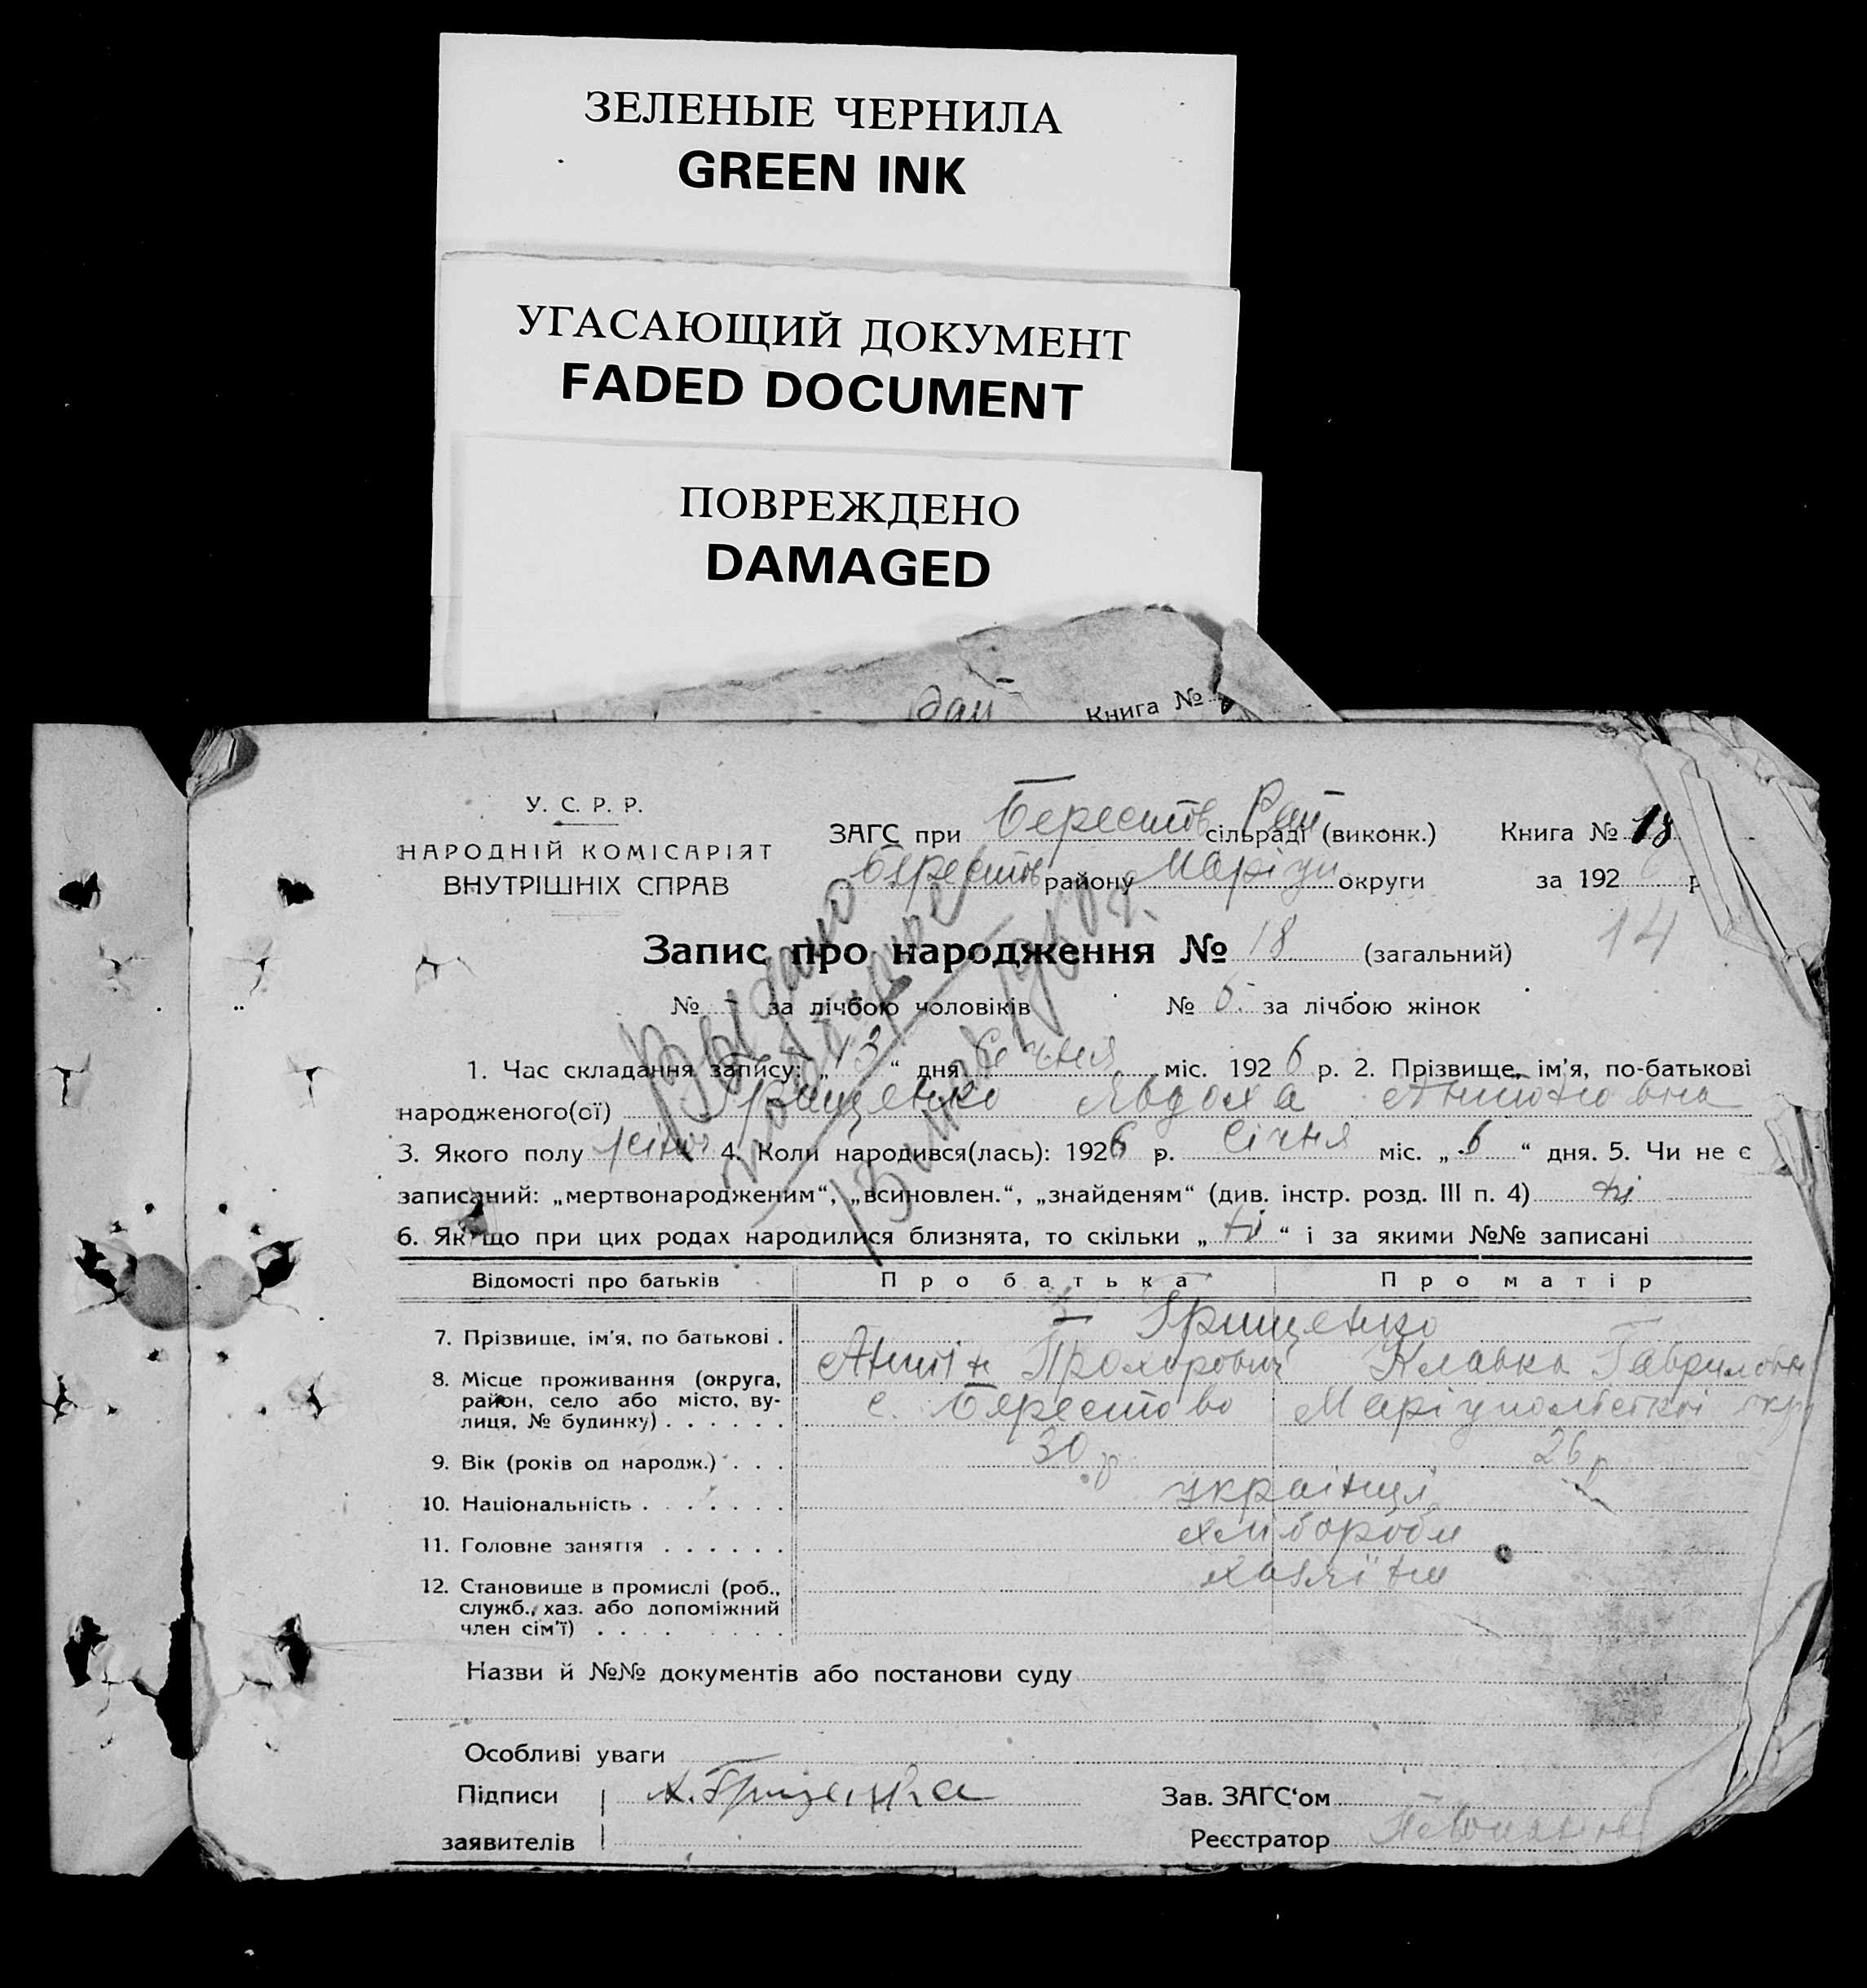 ЗЕЛЕНЫЕ ЧЕРНИЛА
GREEN INK
УГАСАЮЩИЙ ДОКУМЕНТ
FADED DOCUMENT
ПОВРЕЖДЕНО
DAMAGED
Книга №
У. С. Р. Р.
НАРОДНІЙ КОМІСАРІЯТ
ВНУТРІШНІХ СПРАВ
ЗАГС при Берестов Рай сільраді (виконк.) Книга № 18
Берестов району Маріуп округи за 192 р
Запис про народження № 18 (загальний) 14
№ - за лічбою чоловіків № 5. за лічбою жінок
1. Час складання запису: „13“ дня Січня міс. 1926 р. 2. Прізвище, ім’я, по-батькові
народженого(ої) Грищенко Явдоха Антоновна
3. Якого полу жіноч 4. Коли народився(лась): 1926 р. Січня міс. „6“ дня. 5. Чи не є
записаний: „мертвонародженим“, „всиновлен.“, „знайденям“ (див. інстр. розд. III п. 4) ні
6. Якщо при цих родах народилися близнята, то скільки „ні“ і за якими №№ записані
Выдано
Відомості про батьків Про батька Про матір
7. Прізвище, ім’я, по батькові . Грищенко
Антін Прохорович Клавка Гавриловн
8. Місце проживання (округа,
район, село або місто, ву-
лиця, № будинку) . . . . . . с. Берестово Маріупольської окр
9. Вік (років од народж.) . . . 30 р 26 р
10. Національність . . . . . . . українці
11. Головне заняття . . . . . . хлібороби
12. Становище в промислі (роб.,
служб., хаз. або допоміжний
член сім’ї) . . . . . . . . . хазяїни
Назви й №№ документів або постанови суду
Особливі уваги
Підписи Зав. ЗАГС‘ом
заявителів Реєстратор